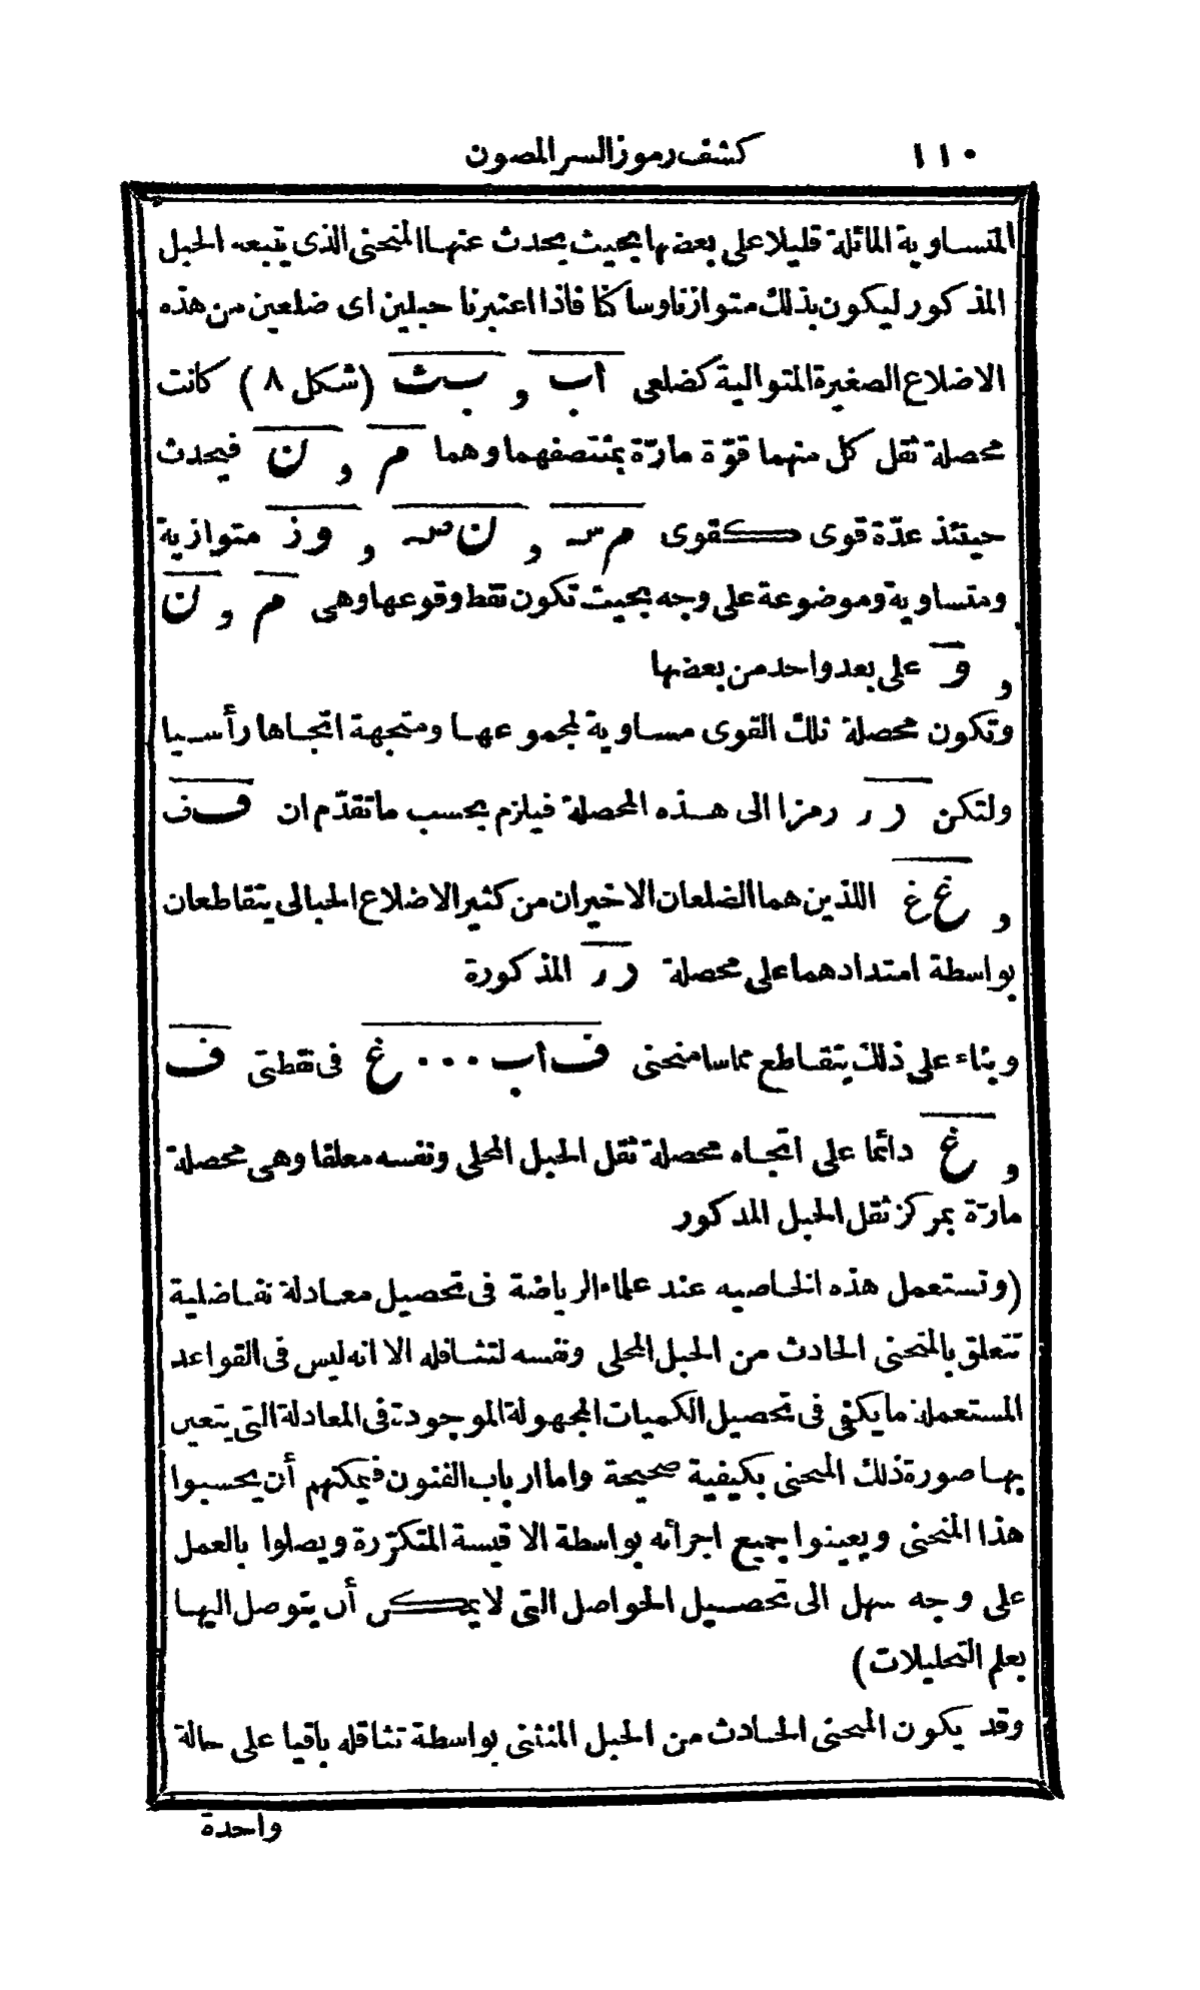 ١١٠ كشف رموز السر المصون
المتساوية المائلة قليلا على بعضها بحيث يحدث عنها المنحنى الذى يتبعه الحبل
المذكور ليكون بذلك متوازنا وساكنا فاذا اعتبرنا حبلين اى ضلعين من هذه
الاضلاع الصغيرة المتوالية كضلعى اب و بث (شكل ٨) كانت
محصلة ثقل كل منهما قوّة مارّة بمنتصفهما وهما م و ن فيحدث
حينئذ عدّة قوى كقوى مس و نس و وز متوازية
ومتساوية وموضوعة على وجه بحيث تكون نقط وقوعها وهى م و ن
و و على بعد واحد من بعضها
وتكون محصلة تلك القوى مساوية لمجموعها ومتجهة اتجاها رأسيا
ولتكن رر رمزا الى هذه المحصلة فيلزم بحسب ما تقدّم ان فف
و غغ اللذين هما الضلعان الاخيران من كثير الاضلاع الحبالى يتقاطعان
بواسطة امتدادهما على محصلة رر المذكورة
وبناء على ذلك يتقاطع مماسا منحنى ف اب ٠٠٠ غ فى نقطتى ف
و غ دائما على اتجاه محصلة ثقل الحبل المخلى ونفسه معلقا وهى محصلة
مارّة بمركز ثقل الحبل المذكور
(وتستعمل هذه الخاصيه عند علماء الرياضة فى تحصيل معادلة تفاضلية
تتعلق بالمنحنى الحادث من الحبل المخلى ونفسه لتثاقله الا انه ليس فى القواعد
المستعملة ما يكفى فى تحصيل الكميات المجهولة الموجودة فى المعادلة التى يتعين
بها صورة ذلك المنحنى بكيفية صحيحة واما ارباب الفنون فيمكنهم أن يحسبوا
هذا المنحنى ويعينوا جميع اجزائه بواسطة الاقيسة المتكرّرة ويصلوا بالعمل
على وجه سهل الى تحصيل الحواصل التى لا يمكن أن يتوصل اليها
بعلم التحليلات)
وقد يكون المنحنى الحادث من الحبل المنثنى بواسطة تثاقله باقيا على حالة
واحدة